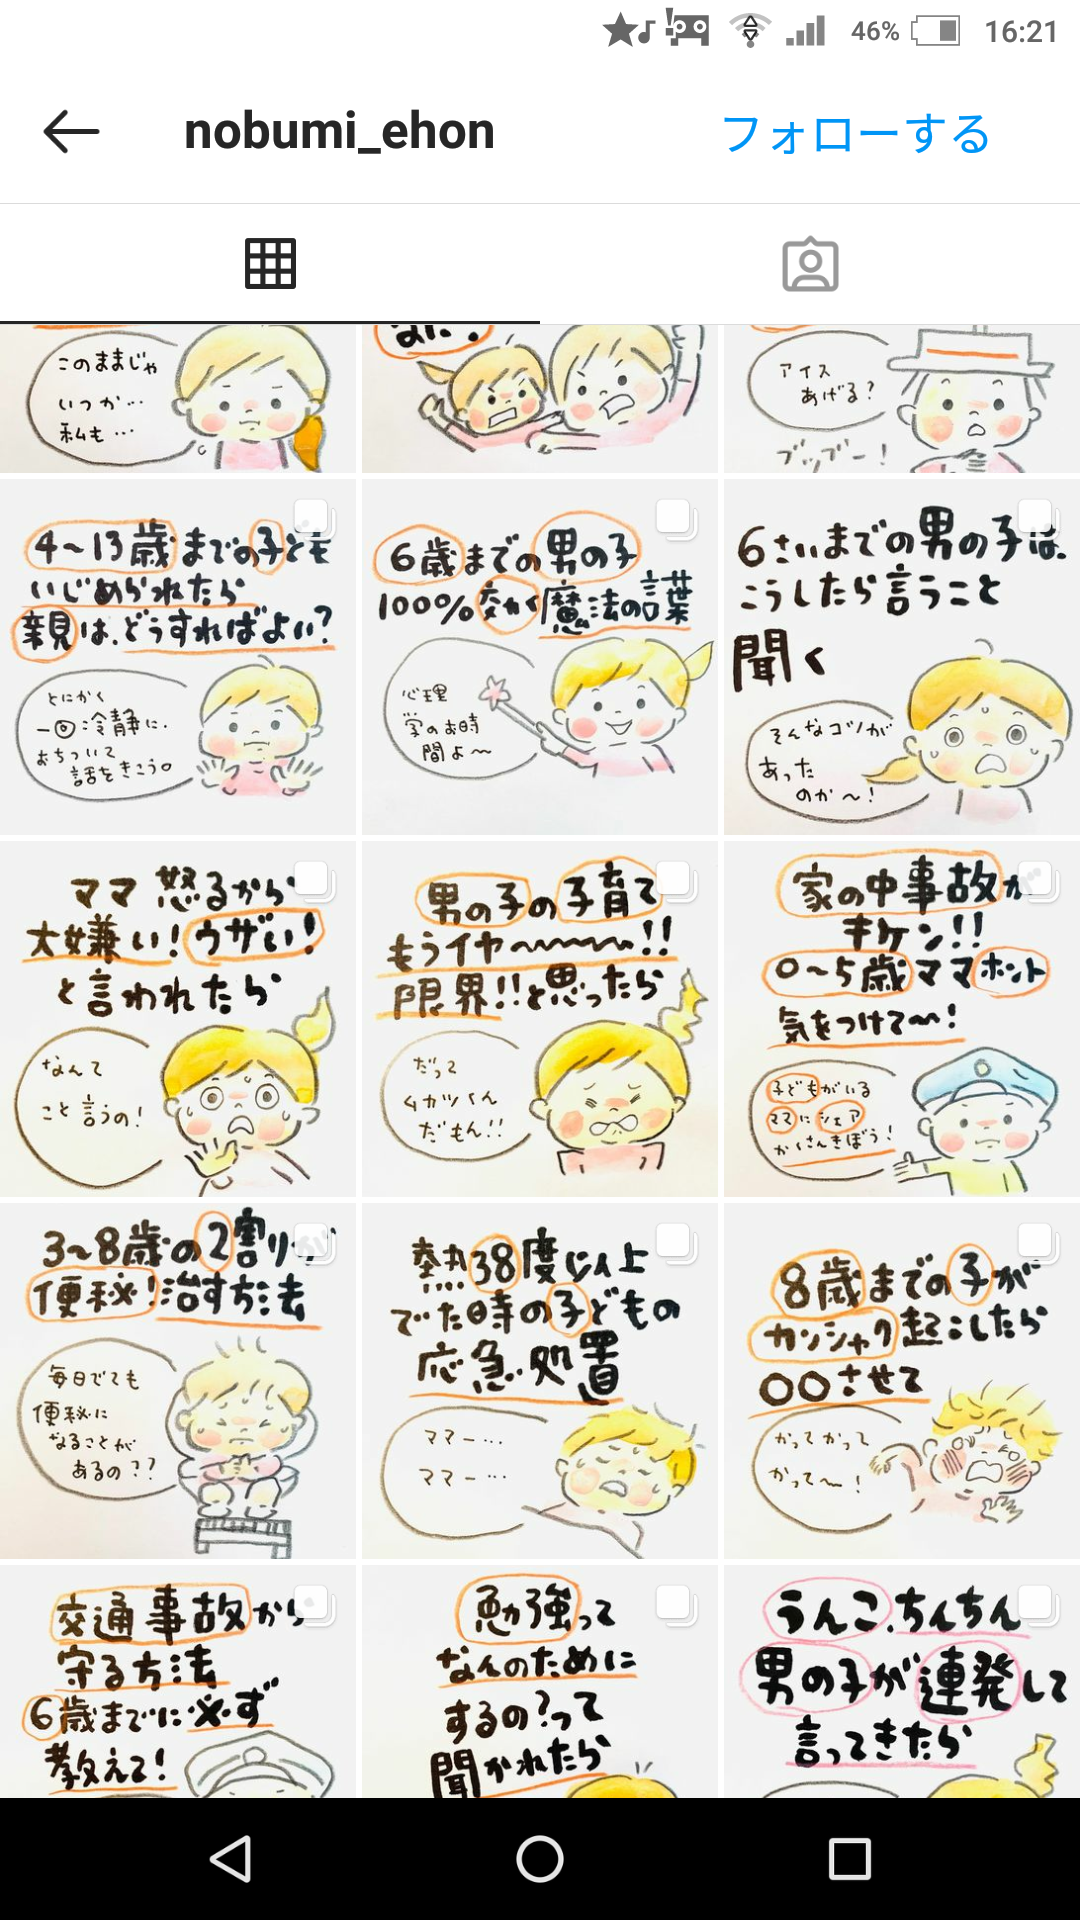 46% 16:21
nobumi_ehon フォローする
このままじゃ
いつか…
私も…
アイス
あげる?
ブッブー!
4〜13歳までの子ども
いじめられたら
親は、どうすればよい?
とにかく
一回冷静に.
おちついて
話をきこう。
6歳までの男の子
100%交わく魔法の言葉
心理
学のお時
間よ〜
6さいまでの男の子は、
こうしたら言うこと
聞く
そんなコツが
あった
のか〜!
ママ怒るから
大嫌い!ウザい!
と言われたら
なんて
こと言うの!
男の子の子育て
もうイヤ〜〜〜!!
限界!!と思ったら
だって
ムカツくん
だもん!!
家の中事故が
キケン!!
0〜5歳ママホント
気をつけて〜!
子どもがいる
ママにシェア
かくさんきぼう!
3〜8歳の2割りが
便秘!治す方法
毎日でても
便秘に
なることが
あるの??
熱38度以上
でた時の子どもの
応急処置
ママー…
ママー…
8歳までの子が
カンシャク起こしたら
○○させて
かってかって
かって〜!
交通事故から
守る方法
6歳までに必ず
教えて!
勉強って
なんのために
するの?って
聞かれたら
うんこ、ちんちん
男の子が連発して
言ってきたら